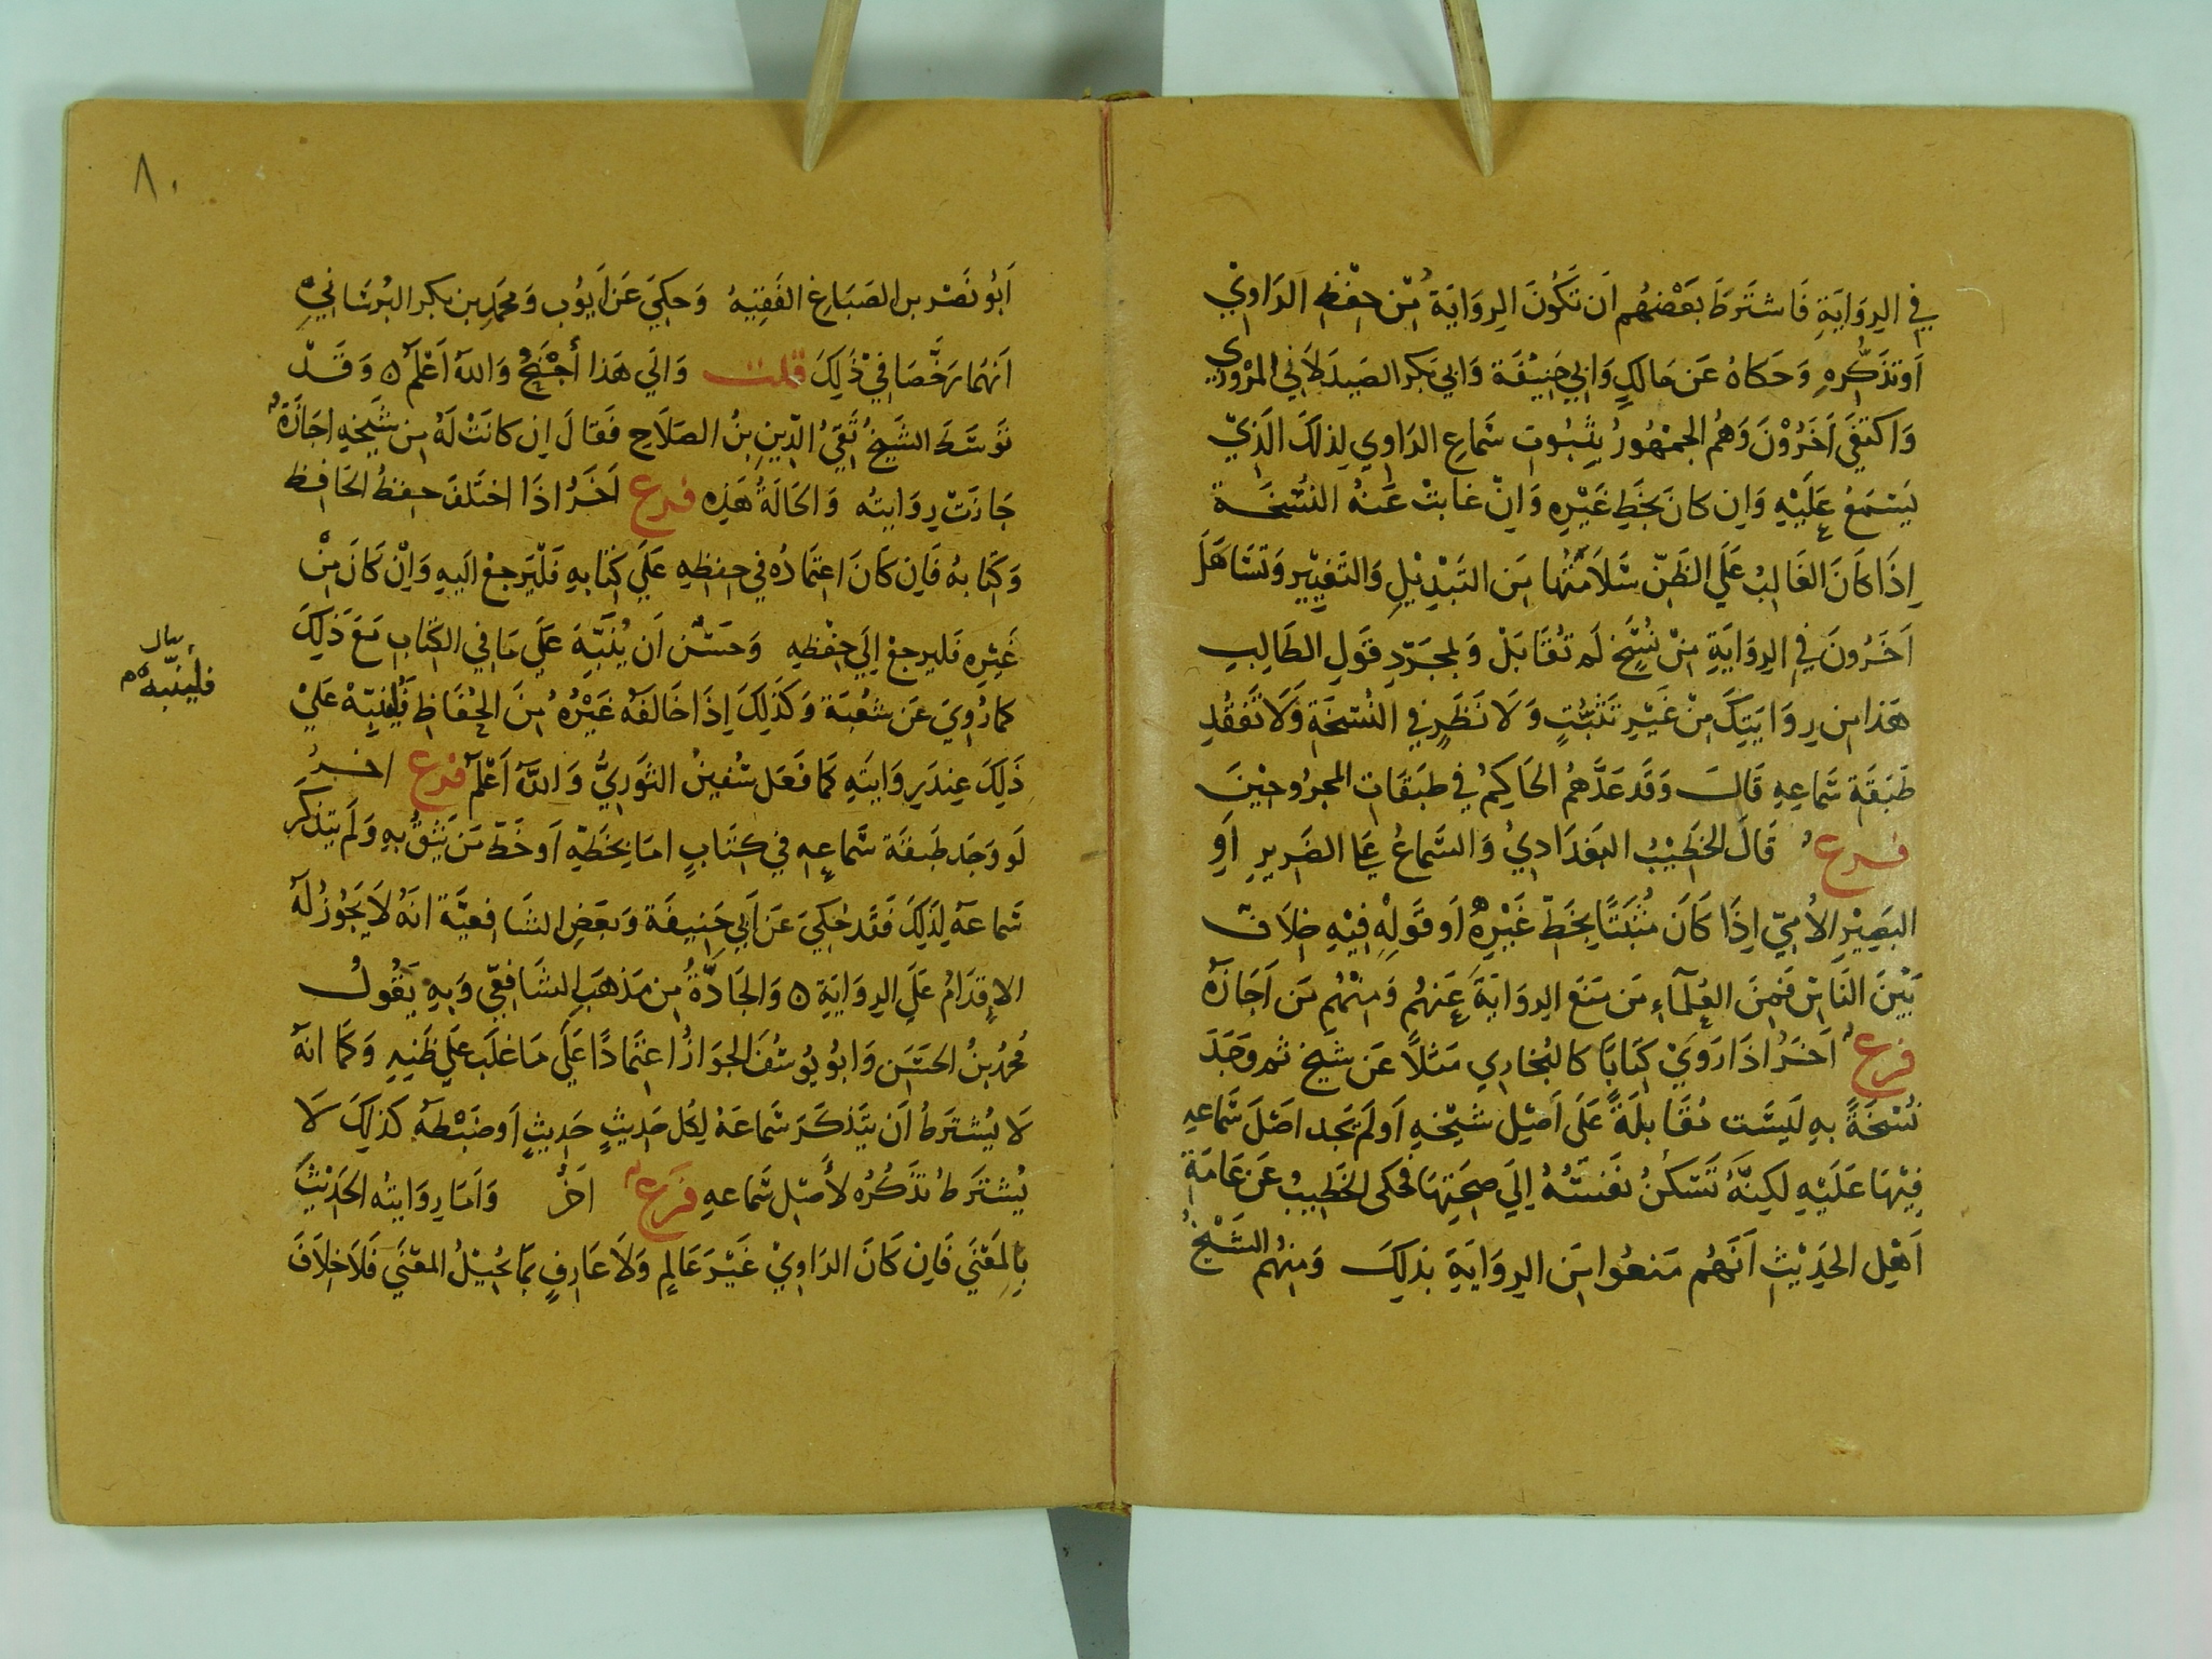 في الرِوَايَةِ فَاشتَرَطَ بَعْضُهُم اَن تَكُونَ الرِوَايَةُ مِن حِفْظِ الرَاوِيْ
اَوتَذَكُّرِهِ وَحَكاهُ عَن مَالكٍ وَابي حَنِيْفَة وَابي بَكر الصَيدَلاَني المرْوزي
وَاكتفَى اَخَرُوْنَ وَهُم الجمْهُورُ بِثبُوتِ سَماعِ الرَاوِي لِذلكَ الَذِيْ
يَسْمَعُ عَلَيْهِ وَاِن كانَ بخَطِ غَيْرِهِ وَاِنْ غابتْ عَنهُ النُسْخَة
اِذَا كَانَ الغَالِبُ عَلَي الظَنّ سَلاَمَتُهَا مِنَ التَبْدِيْلِ وَالتَغيِيْرِ وَتَسَاهَلَ
اَخَرُونَ فِي الرِوَايَةِ مِنْ نُسَخٍ لَم تُقَابَلْ وَبمجَرّدِ قَولِ الطَالِبِ
هَذا مِن رِوَايَتِكَ مِنْ غَيْرِ تَثَبُّتٍ وَلاَ نَظَرٍ فِي النُسْخَةِ وَلاَ تَفَقُّدِ
طَبَقَة سَماعِهِ قَالَ وَقَد عَدَّهمُ الحَاكِمُ في طبَقَاتِ المجرُوحِيْنَ
فرع قَالَ الخَطِيْبُ البَغدَادِيُ وَالسَّماعُ عَلَى الضَرِيرِ اَوِ
البَصِيْرِ الاُمِيّ اِذَا كَانَ مُثبَتًا بِخَطّ غَيْرِهِ اَو قَولِهِ فِيْهِ خِلاَفٌ
بَيْنَ النَاسِ فَمِنَ العُلَمَآءِ مَن مَنَعَ الرِوَايَةَ عَنهُم وَمِنْهُم مَن اَجَازَهُ
فرع اَخَرُ اِذَا رَوَيْ كِتَابًا كالبُخارِي مَثلاً عَن شَيخٍ ثم وَجَدَ
نُسْخَةً بهِ لَيسَت مُقَابلَةً عَلَى اَصْلِ شَيْخهِ اَو لَم يَجد اَصْلَ سَّماعِهِ
فِيْهَا عَلَيْهِ لَكِنَّهُ تَسْكنُ نَفسُهُ اِلَي صِحَتِهَا فحكى الخَطِيبُ عَن عَامَةِ
اَهْلِ الحَدِيْثِ اَنَهُم مَنعُوا مِنَ الرِوَايَةِ بذلِكَ وَمِنهُم الشَيْخُ
٨٠
اَبُو نَصْر بن الصَبَاغ الفَقِيْهُ وَحكِيَ عَن اَيُوب وَمحَمَدِ بن بكر البُرسَاني
اَنَهُمَا رَخَّصَا فِيْ ذَلِكَ قلت وَالَي هَذا أَجْنَحُ وَاللهُ اَعْلَمُ ٥ وَقَدْ
تَوَسَّطَ الشَيخُ تَقيُ الدِينِ بنُ الصَلاَحِ فَقالَ اِن كانَتْ لَهُ مِن شَيخِهِ اِجَازَةُ
جَازَتْ رِوَايتُه وَالحَالَةُ هَذِهِ فرع اَخَرُ اِذَا اختَلفَ حِفظُ الحَافِظ
وَكتَابهُ فَاِن كَانَ اعتمَادُه فِي حِفظِهِ عَلَي كِتَابهِ فَلْيَرجعْ الَيهِ وَاِنْ كَانَ مِنْ
غَيْرِهِ فَليرجعْ اِلَي حِفْظهِ وَحَسُنَ اَن يُنَبِّهَ عَلَي مَا فِي الكتابِ مَعَ ذَلِكَ
كمَا رُوِيَ عَن شعْبَة وَكَذَلِكَ اِذَا خَالَفَهُ غَيْرُهُ مِنَ الحُفَّاظِ فَلْيُنَبِّهْ عَلَيْ
ذَلِكَ عِندَ رِوَايتِهِ كمَا فَعَل سُفينُ الثوْرِيُّ وَاللهُ اَعْلَمُ فرع اخَرُ
لَو وَجَدَ طَبَقَة سَّماعِهِ في كِتَابٍ امَا بِخَطِّهِ اَو خَطّ مَن يَثِقُ بهِ وَلَم يَتذكر
سَماعَهُ لِذَلِكَ فَقَد حُكِيَ عَن اَبي حَنيفَة وَبَعَضِ الشَافِعيَّة انَهُ لاَ يَجُوزُ لَهُ
الاِقدَامُ عَلَى الرِوَايَةِ ٥ وَالجَادَّةُ مِن مَذهَبِ الشَافِعيّ وَبهِ يَقُولُ
مُحمدُ بنُ الحَسَن وَابُو يُوسُفَ الجوَازُ اعتمَادًا عَلَى مَا غلَب عَلَي ظَنِهِ وَكمَا انَهُ
لاَ يُشترَطُ اَن يتَذكَرَ سَماعَهُ لِكُل حَدِيثٍ حَدِيثٍ اَو ضَبْطهُ كَذلِكَ لاَ
يُشتَرطُ تذَكُرُه لأَصْل سَماعهِ فَرع اخَرُ وَاَمَا رِوَايتُه الحَدِيْثَ
بِالمَعْنَي فَاِن كَانَ الرَاوِيْ غَيْرَ عَالِمٍ وَلاَ عَارِفٍ بمَا يُحيْلُ المعْنَي فَلاَ خِلاَفَ
بيان
فليُنبّه